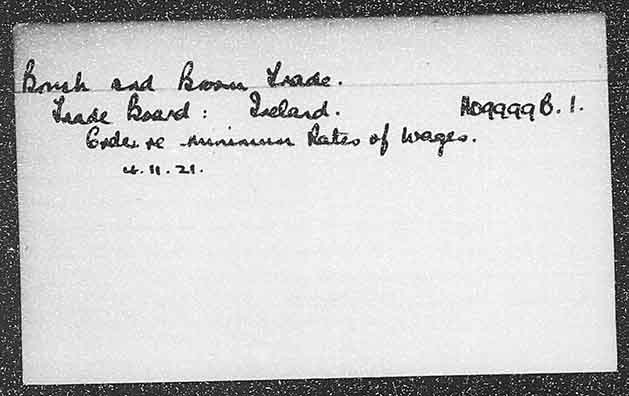 Brush and Broom Trade.
Trade Board: Ireland. A09999B.1.
Order re minimum Rates of Wages.
4.11.21.